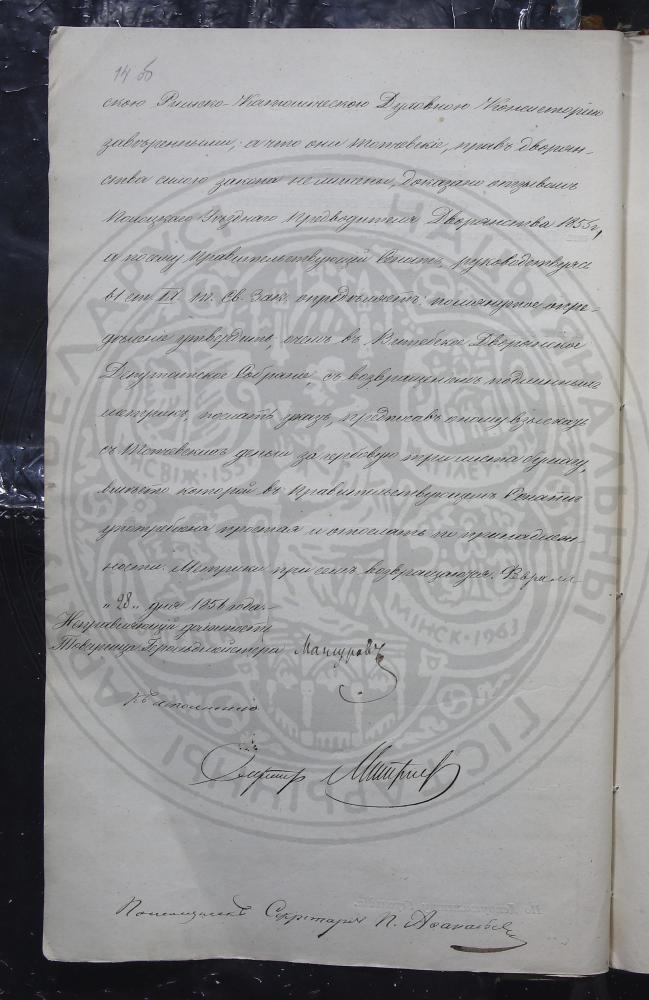 14 об
скою Римско-Католическою Духовною Консисторіею
завѣренными; а что они Котовскіе, правъ дворян-
ства силою закона не лишены, доказано отзывомъ
Полоцкаго Уѣзднаго Предводителя Дворянства 1855 г.,
а посему Правительствующій Сенатъ, руководствуясь
61 ст. IX т. Св. Зак. опредѣляетъ: помянутое опре-
дѣленіе утвердить, о чемъ въ Витебское Дворянское
Депутатское Собраніе, съ возвращеніемъ подлинныхъ
метрикъ, послать указъ, предписавъ оному взыскать
съ Котовскихъ деньги за гербовую три листа бумагу,
вмѣсто которой въ Правительствующемъ Сенатѣ
употреблена простая и отослать по принадлеж-
ности. Метрики при семъ возвращаются. Февраля
„28„ дня 1856 года.
Исправляющій должность
Товарища Герольдмейстера Мансуровъ
Къ исполненію
Помощникъ Секретаря П. Аѳанасьевъ
БЕЛАРУСІ НАЦЫЯНАЛЬНЫ ГІСТАРЫЧНЫ
НЯСВІЖ-1551
МІНСК-1993